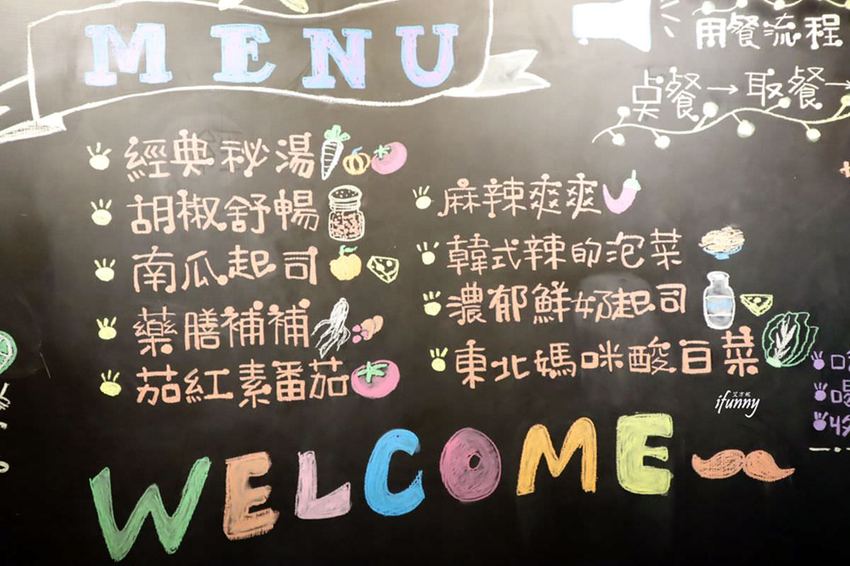 MENU
經典祕湯
胡椒舒暢
南瓜起司
藥膳補補
茄紅素番茄
麻辣爽爽
韓式辣的泡菜
濃郁鮮奶起司
東北媽咪酸白菜
用餐流程
点餐→取餐→
艾方妮
ifunny
WELCOME